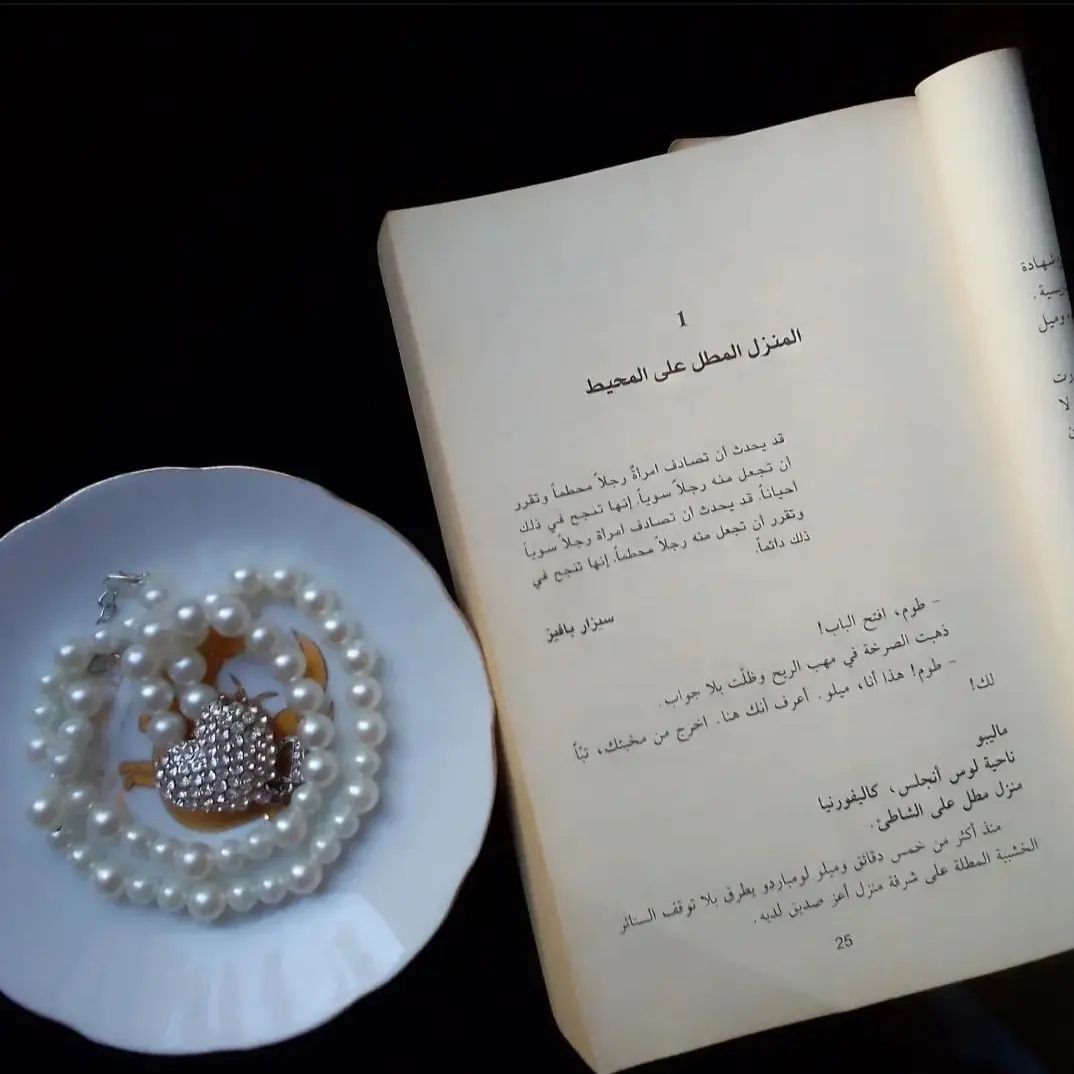 1
المنزل المطل على المحيط
قد يحدث أن تصادف امرأةٌ رجلاً محطماً وتقرر
أن تجعل منه رجلاً سوياً. إنها تنجح في ذلك
أحياناً. قد يحدث أن تصادف امرأة رجلاً سوياً
وتقرر أن تجعل منه رجلاً محطماً. إنها تنجح في
ذلك دائماً.
سيزار بافيز
- طوم، افتح الباب!
ذهبت الصرخة في مهب الريح وظلّت بلا جواب.
- طوم! هذا أنا، ميلو. أعرف أنك هنا. اخرج من مخبئك، تبّاً
لك!
ماليبو
ناحية لوس أنجلس، كاليفورنيا
منزل مطل على الشاطئ.
منذ أكثر من خمس دقائق وميلو لومباردو يطرق بلا توقف الستائر
الخشبية المطلة على شرفة منزل أعز صديق لديه.
25
وميل
لا